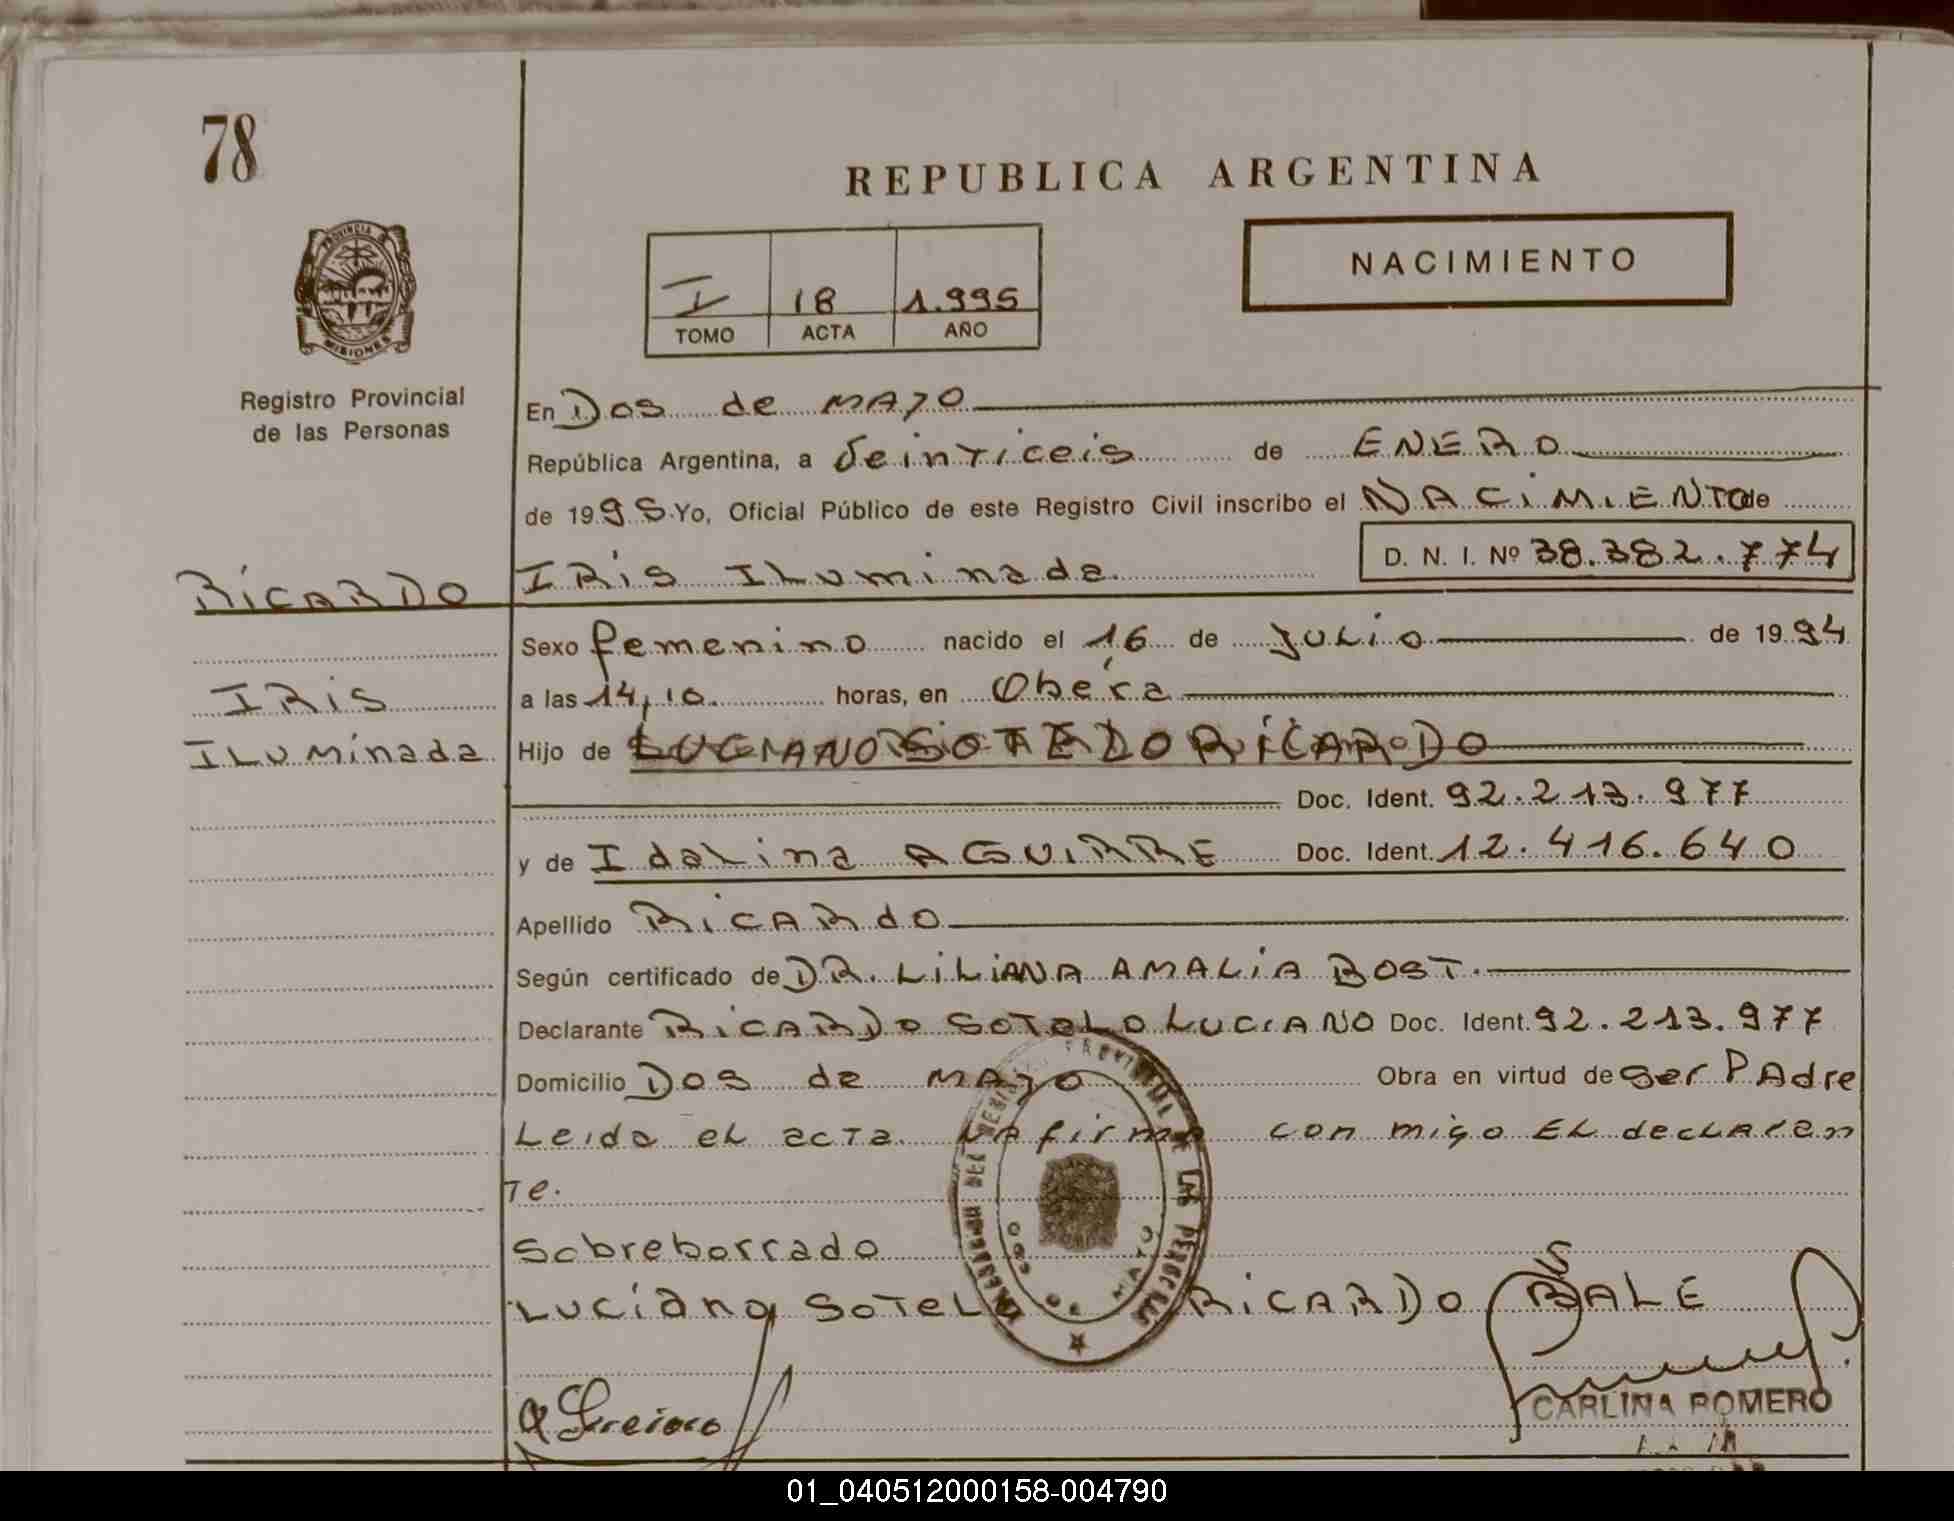 78
REPUBLICA ARGENTINA
NACIMIENTO
I 18 1.995
TOMO ACTA AÑO
PROVINCIA DE
MISIONES
Registro Provincial
de las Personas
En Dos de MAyO
República Argentina, a Veinticeis de ENERO
de 1995 Yo, Oficial Público de este Registro Civil inscribo el NACiMiENTO de
D. N. I. Nº 38.382.774
RiCARDO IRis ILuminada
Sexo femenino nacido el 16 de JuLio de 1994
a las 14,10 horas, en Oberá
IRis
ILuminada
Hijo de LUCIANO SOTELO RiCARDO
Doc. Ident. 92.213.977
y de IdaLina AGUiRRE Doc. Ident. 12.416.640
Apellido RiCARdO
Según certificado de DR. LiLiANA AMALiA BOST.
Declarante RiCARDO SOTELO LUCIANO Doc. Ident. 92.213.977
Domicilio Dos de MAyO Obra en virtud de ser PAdre
Leida eL acta La firma con migo EL decLaran
Te.
Sobreborrado
Luciano SoteLo RiCARDO VALE
CARLINA ROMERO
01_040512000158-004790